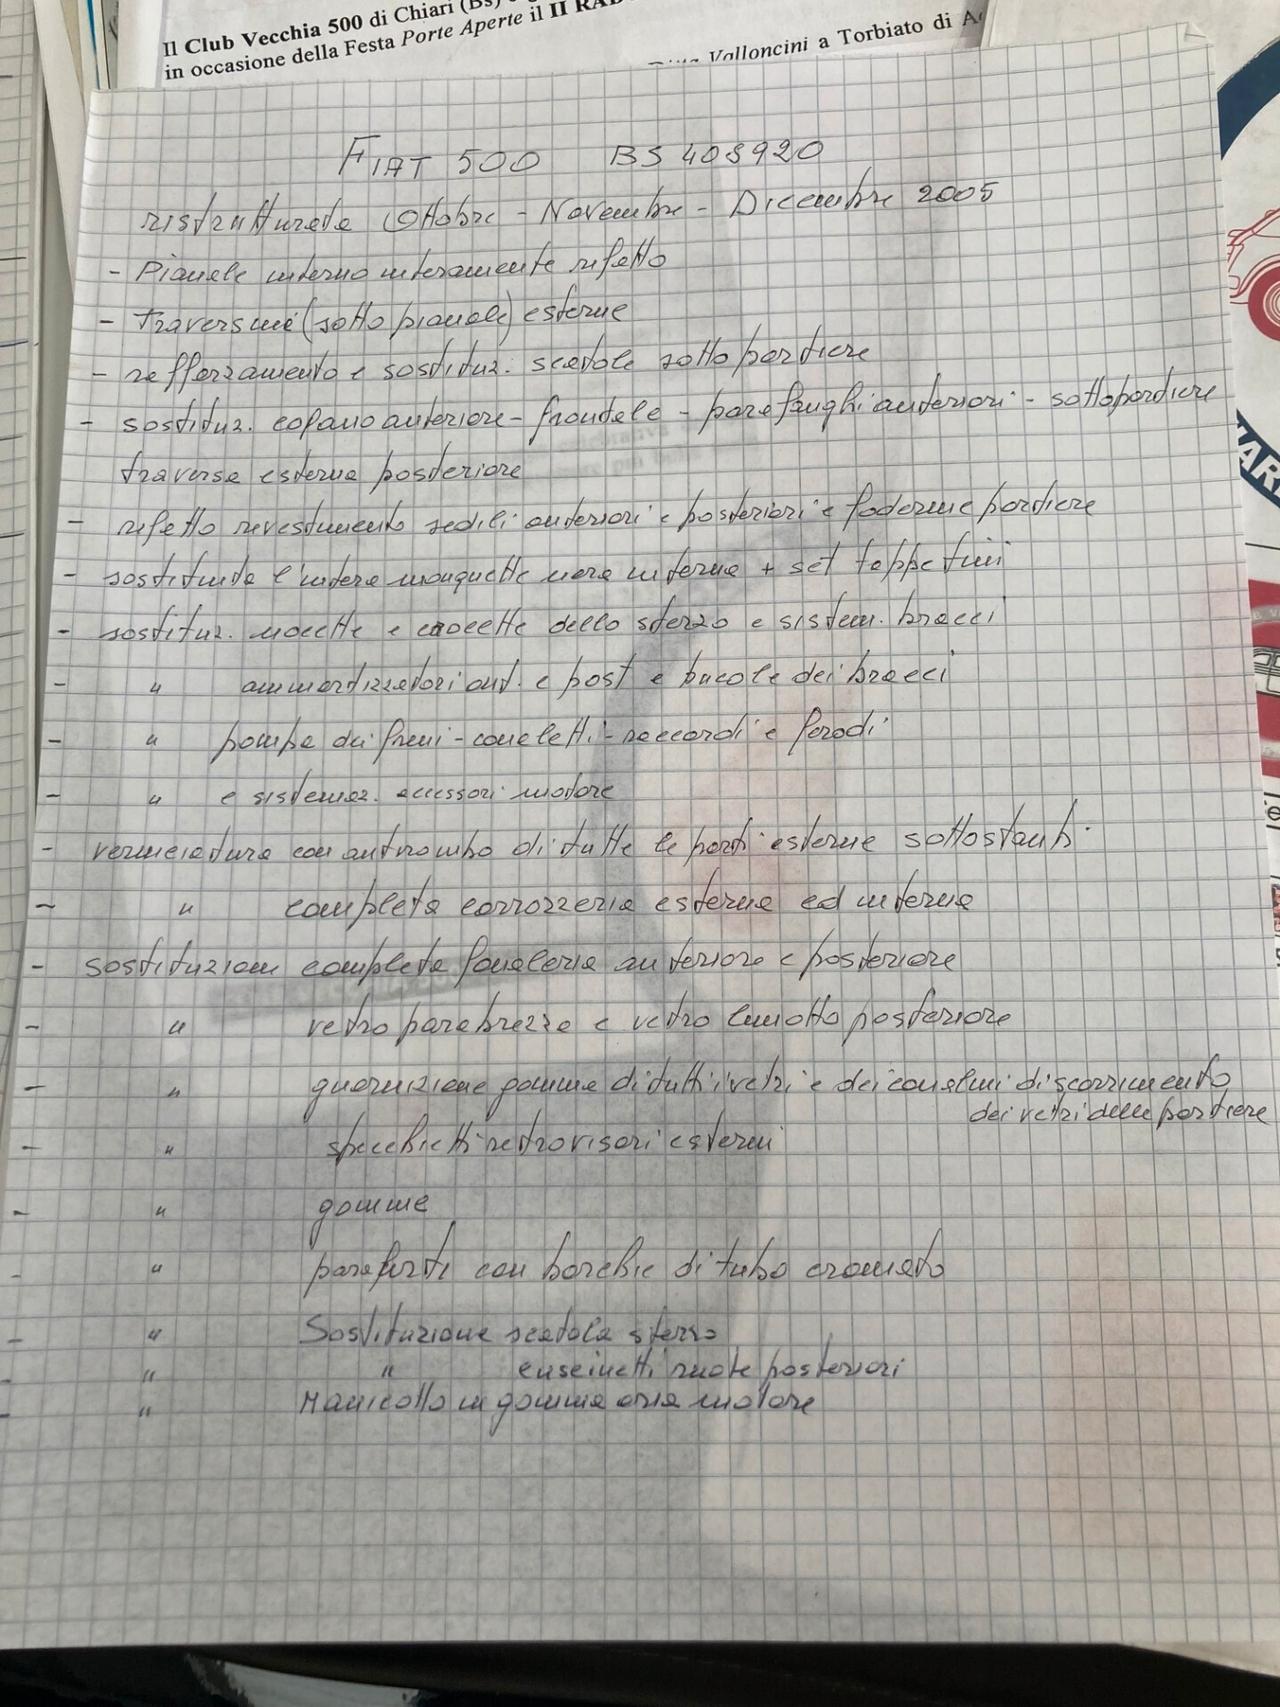 Il Club Vecchia 500 di Chiari (Bs)
in occasione della Festa Porte Aperte il II
Valloncini a Torbiato di
FIAT 500 BS 408920
ristrutturata Ottobre - Novembre - Dicembre 2005
- Pianale interno interamente rifatto
- traversine (sotto pianale) esterne
- rafforzamento e sostituz. scatole sotto portiere
- sostituz. cofano anteriore - frontale - parafanghi anteriori - sottoportiere
traversa esterna posteriore
- rifatto rivestimento sedili anteriori e posteriori e foderine portiere
- sostituita l'intera mouquette nera interna + set tappetini
- sostituz. nocette e crocette dello sterzo e sistem. bracci
- " ammortizzatori ant. e post e bucole dei bracci
- " pompa dei freni - canaletti - raccordi e ferodi
- " e sistemaz. accessori motore
- verniciatura con antirombo di tutte le parti esterne sottostanti
- " completa carrozzeria esterna ed interna
- sostituzioni completa fanaleria anteriore e posteriore
- " vetro parabrezza e vetro lunotto posteriore
- " guarnizione gomma di tutti i vetri e dei canalini di scorrimento
dei vetri delle portiere
- " specchietti retrovisori esterni
- " gomme
- " paraurti con borchie di tubo cromato
- " Sostituzione scatola sterzo
- " " cuscinetti ruote posteriori
- " Manicotto in gomma aria motore